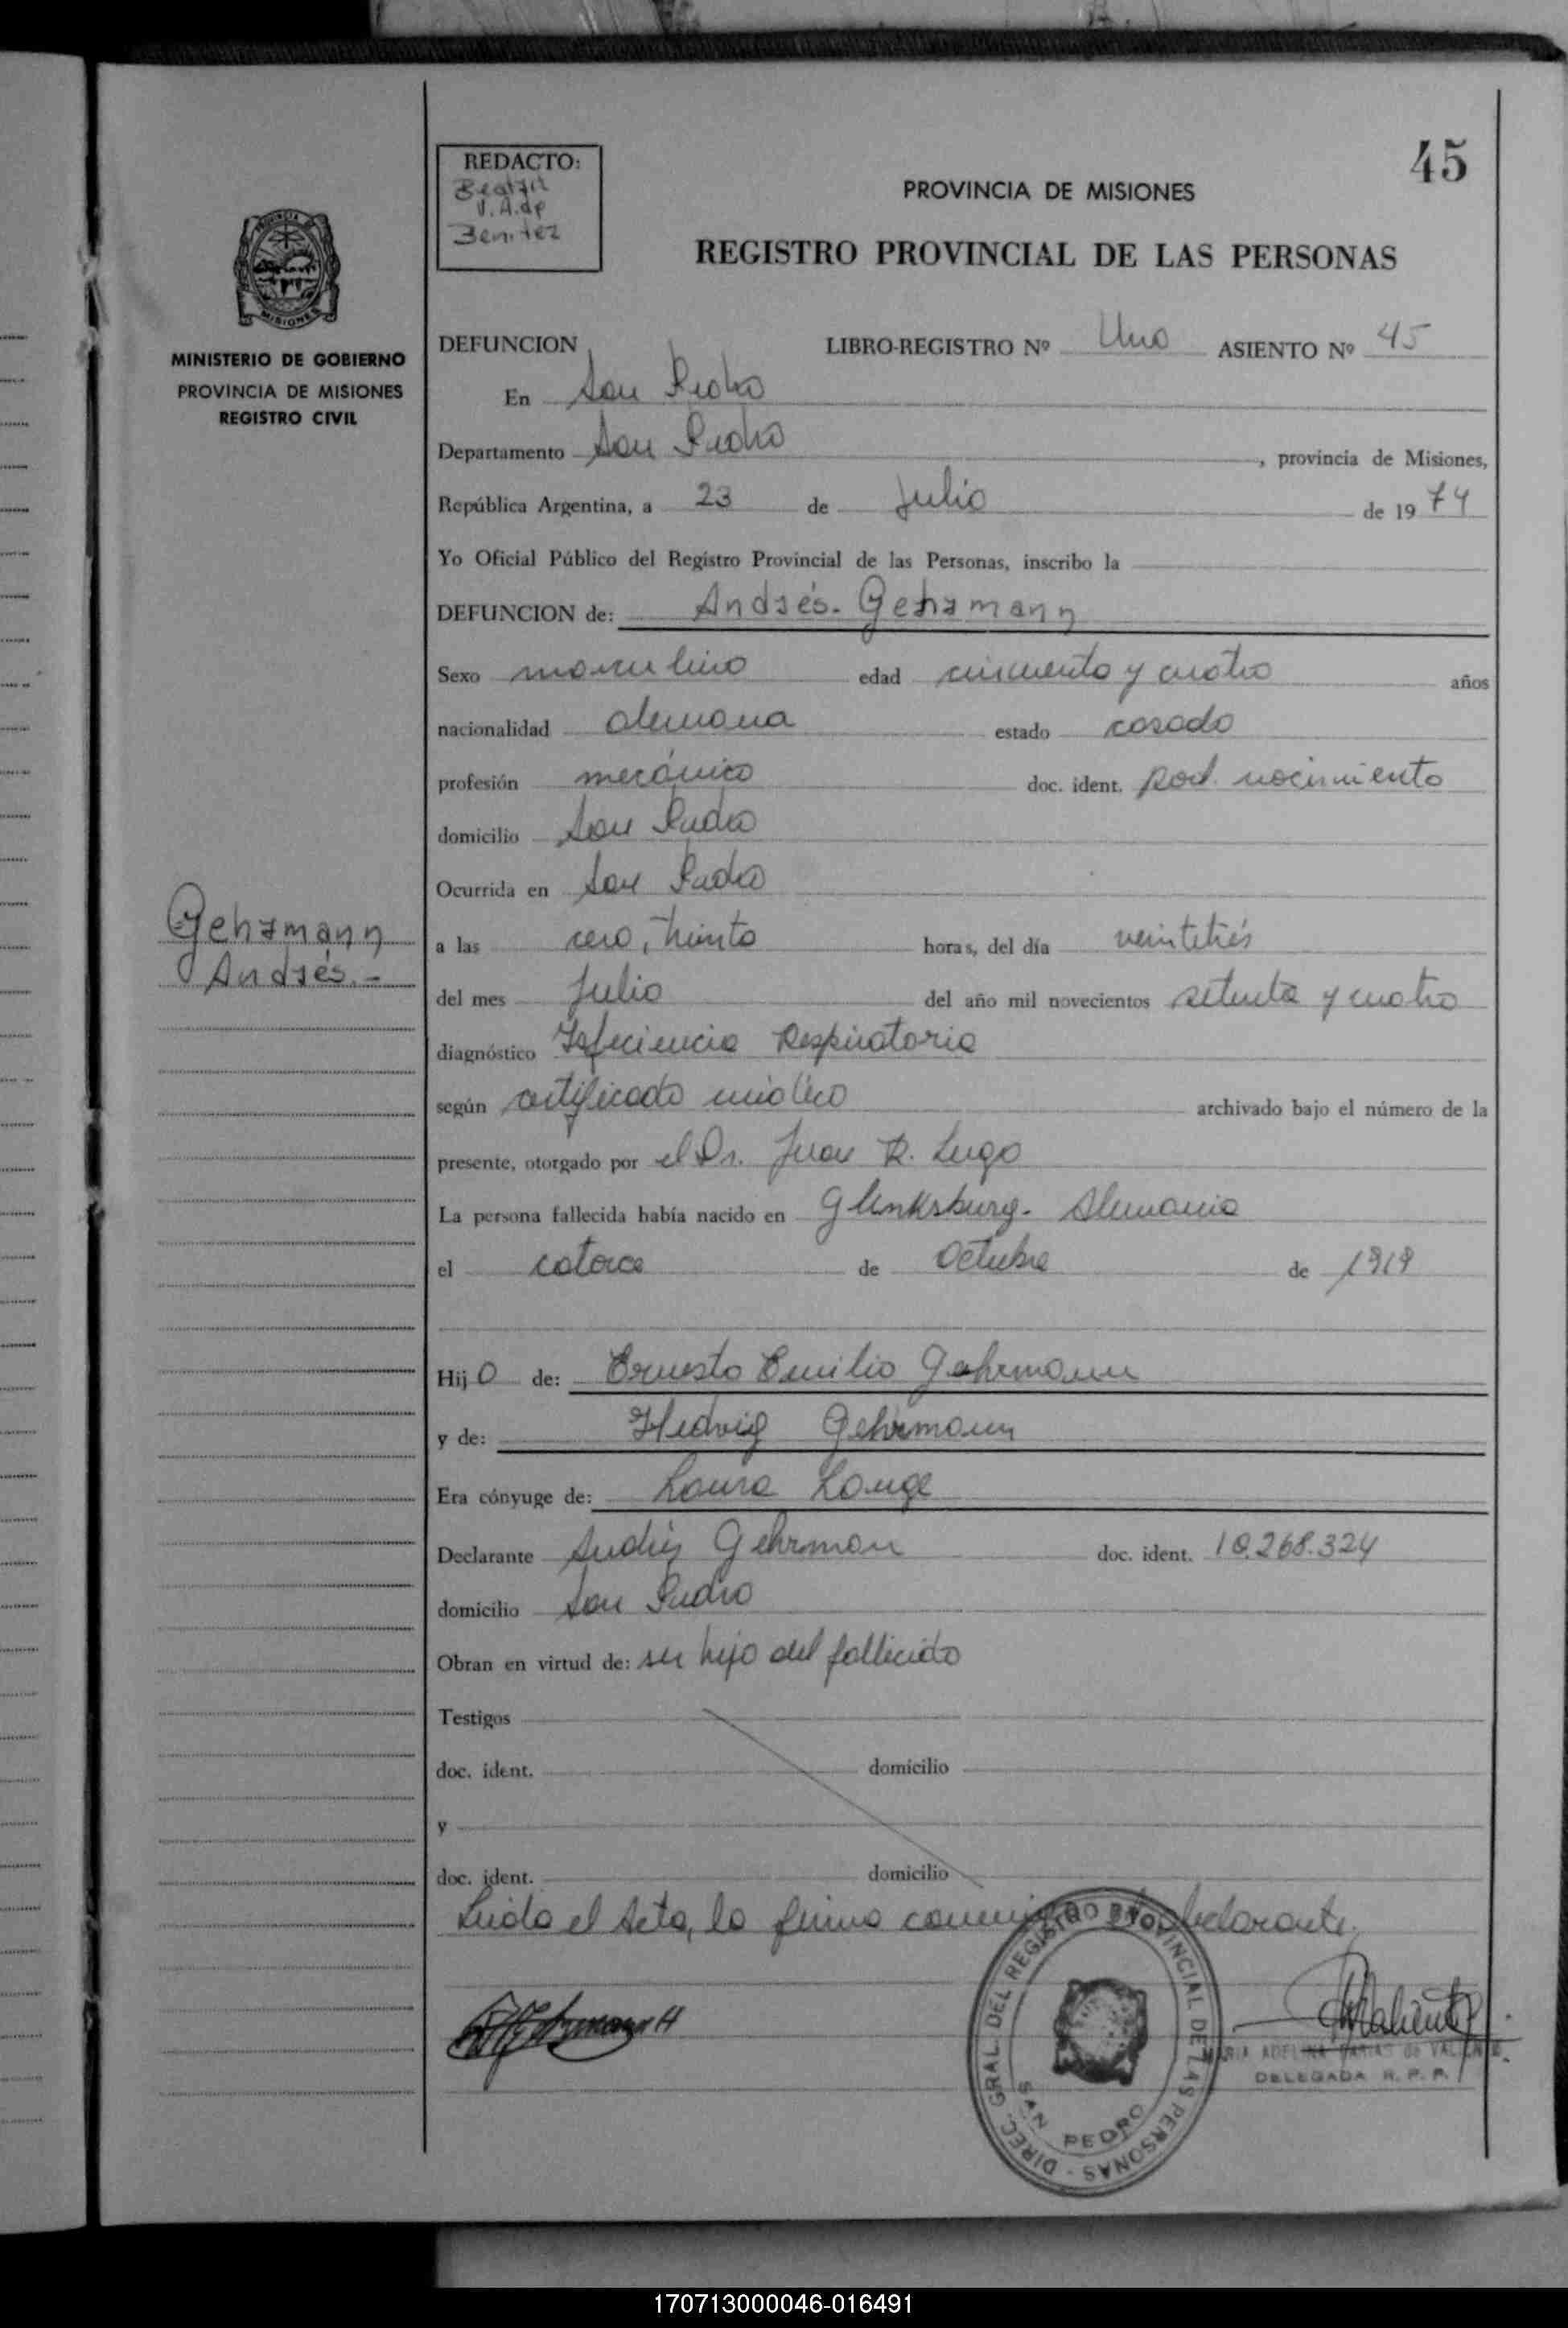 45
REDACTO:
Beatriz
V. A. de
Benitez
PROVINCIA DE MISIONES
REGISTRO PROVINCIAL DE LAS PERSONAS
MISIONES
MINISTERIO DE GOBIERNO
PROVINCIA DE MISIONES
REGISTRO CIVIL
DEFUNCION LIBRO-REGISTRO Nº Uno ASIENTO Nº 45
En San Pedro
Departamento San Pedro, provincia de Misiones,
República Argentina, a 23 de Julio de 1974
Yo Oficial Público del Registro Provincial de las Personas, inscribo la
DEFUNCION de: Andrés. Gehrmann
Sexo masculino edad cincuenta y cuatro años
nacionalidad alemana estado casado
profesión mecánico doc. ident. part. nacimiento
domicilio San Pedro
Ocurrida en San Pedro
Gehrmann
Andrés.-
a las cero, treinta horas, del día veintitrés
del mes Julio del año mil novecientos setenta y cuatro
diagnóstico Insficiencia Respiratoria
según certificado médico archivado bajo el número de la
presente, otorgado por el Dr. Juan R. Lugo
La persona fallecida había nacido en Glinksburg- Alemania
el catorce de Octubre de 1919
Hijo de: Ernesto Emilio Gehrmann
y de: Hedwig Gehrmann
Era cónyuge de: Laura Lange
Declarante Andrés Gehrman doc. ident. 10.268.324
domicilio San Pedro
Obran en virtud de: ser hijo del fallecido
Testigos
doc. ident. domicilio
y
doc. ident. domicilio
Leida el Acta, la firma conmigo el declarante.
DIREC. GRAL. DEL REGISTRO PROVINCIAL DE LAS PERSONAS -
SAN PEDRO
MARIA ADELINA FARIAS de VALIENTE
DELEGADA R. P. P.
170713000046-016491